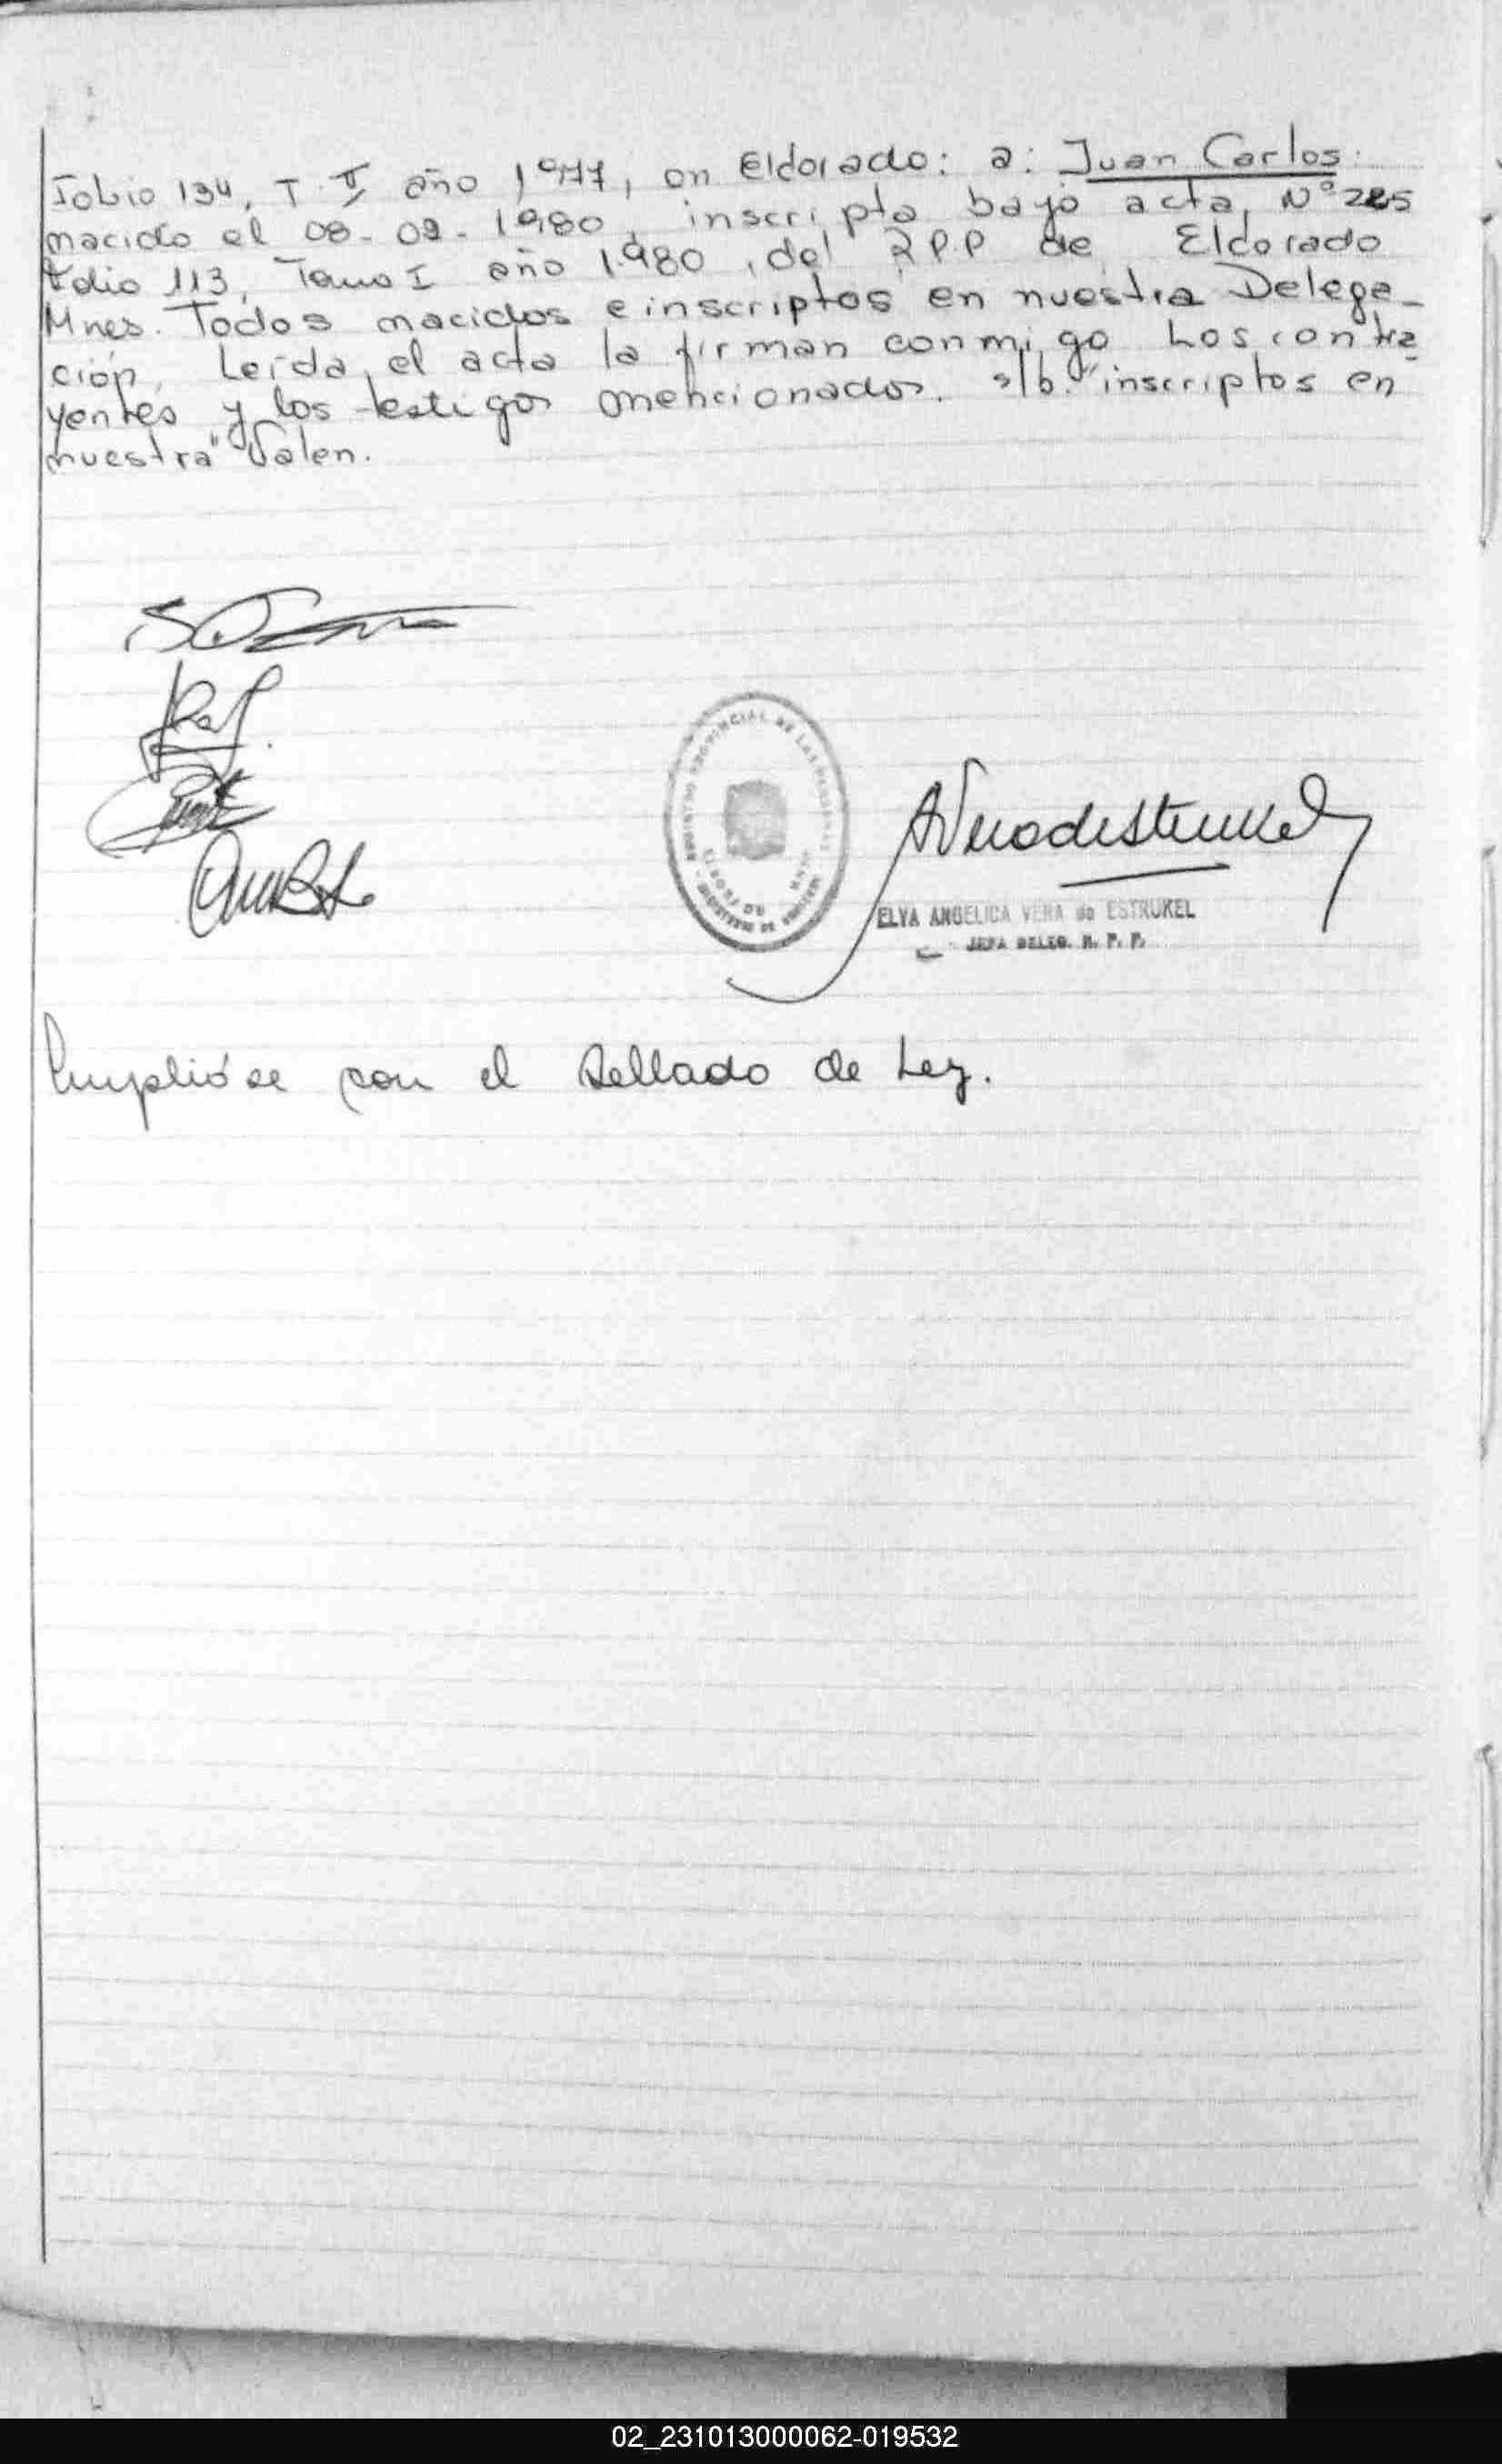 Folio 134, T. II año 1977, en Eldorado: a: Juan Carlos:
nacido el 08-02-1980, inscripto bajo acta, Nº 225
Folio 113, Tomo I año 1.980, del R.P.P de Eldorado
Mnes. Todos nacidos e inscriptos en nuestra Delega-
ción. Leída, el acta la firman conmigo Los contra
yentes y los testigos mencionados. s/b. "inscriptos en
nuestra" Valen.
ELVA ANGELICA VERA de ESTRUKEL
JEFA DELEG. R. P. P.
Cumplióse con el Sellado de Ley.
02_231013000062-019532